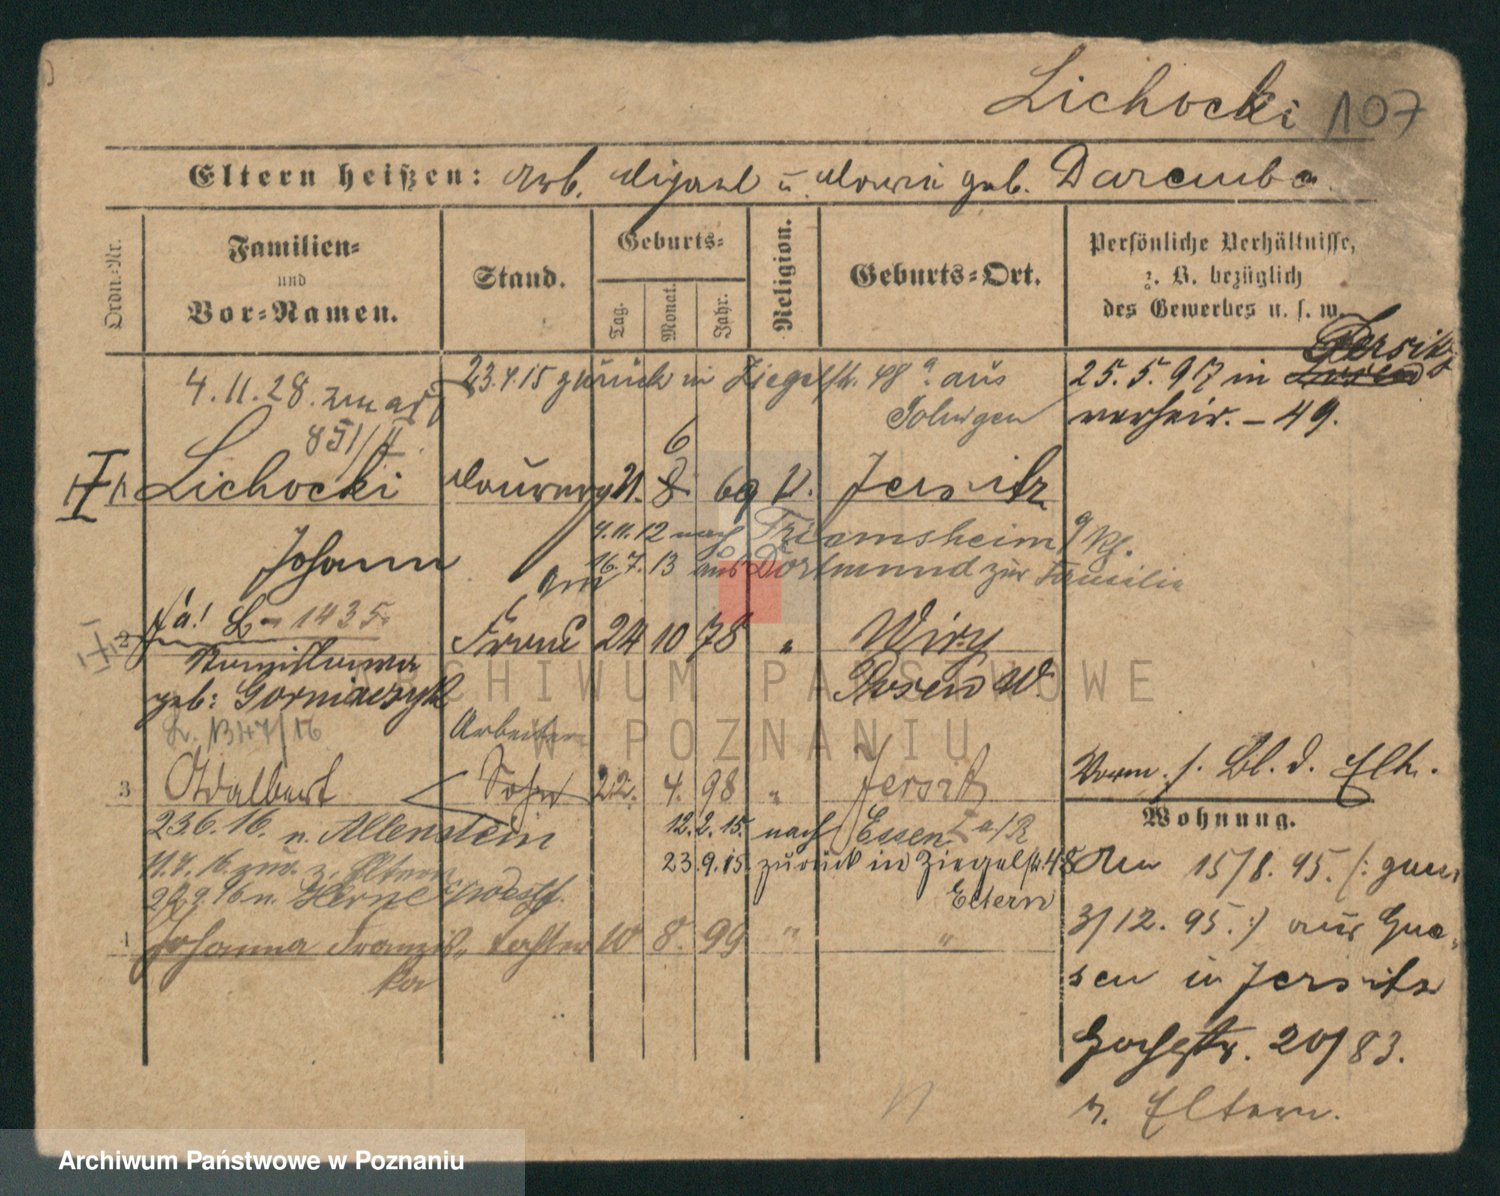 Lichocki 107
Eltern heißen: Arb. Michael u. Maria geb. Daremba
Ordn.-Nr.
Familien-
und
Vor-Namen.
Stand.
Geburts-
Tag.
Monat.
Jahr.
Religion.
Geburts-Ort.
Persönliche Verhältnisse,
z. B. bezüglich
des Gewerbes u. s. w.
4.11.28.
851/II
23.4.15 zurück in Ziegelstr. 48 aus
Solingen
25.5.97 in Posen Jersitz
verheir. – 49.
1 Lichocki
Johann
Maurer 21. 8 6 69 Jersitz
4.11.12 nach
16.7.13 aus Dortmund zur Familie
Ja! L- 1435
2 Stanislawa
geb: Gorniaczyk
Frau 24 10 78 "
Wiry
Posen W.
L. 1347/16
Arbeiter
3 Adalbert Sohn 22. 4. 98 " Jersitz
23.6.16. n. Allenstein
12.2.15. nach Essen a/R
11.7.16 z. Eltern
23.9.15. zurück in Ziegelstr. 48
Eltern
n. Herne
4 Johanna Franzis-
ka
Tochter 10 8. 99 " "
Vorm. s. Bl. d. Elt.
Wohnung.
15/8. 95. (: gem.
3/12. 95. :) aus Gne-
sen in Jersitz
Hochstr. 20/83.
z. Eltern.
ARCHIWUM PAŃSTWOWE
W POZNANIU
Archiwum Państwowe w Poznaniu